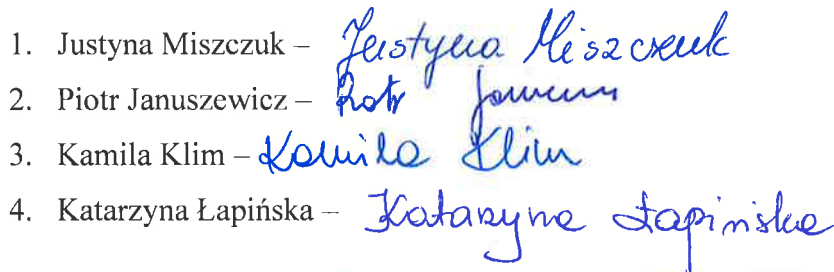 1. Justyna Miszczuk – Justyna Miszczuk
2. Piotr Januszewicz – Piotr
3. Kamila Klim – Kamila Klim
4. Katarzyna Łapińska – Katarzyna Łapińska